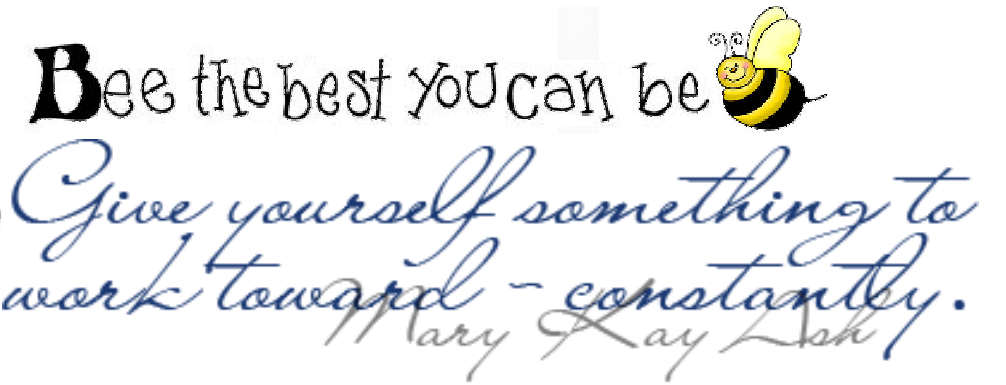 Bee the best you can be
Give yourself something to
work toward - constantly.
Mary Kay Ash